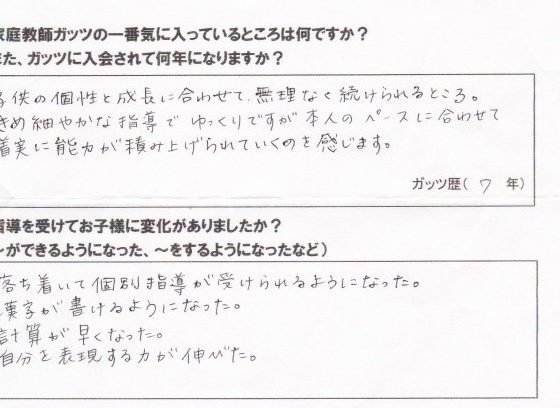 家庭教師ガッツの一番気に入っているところは何ですか?
また、ガッツに入会されて何年になりますか?
子供の個性と成長に合わせて、無理なく続けられるところ。
きめ細やかな指導で ゆっくりですが 本人の ペースに合わせて
着実に能力が積み上げられていくのを感じます。
ガッツ歴( 7 年)
指導を受けてお子様に変化がありましたか?
〜ができるようになった、〜をするようになったなど)
落ち着いて個別指導が受けられるようになった。
漢字が書けるようになった。
計算が早くなった。
自分を表現する力が伸びた。